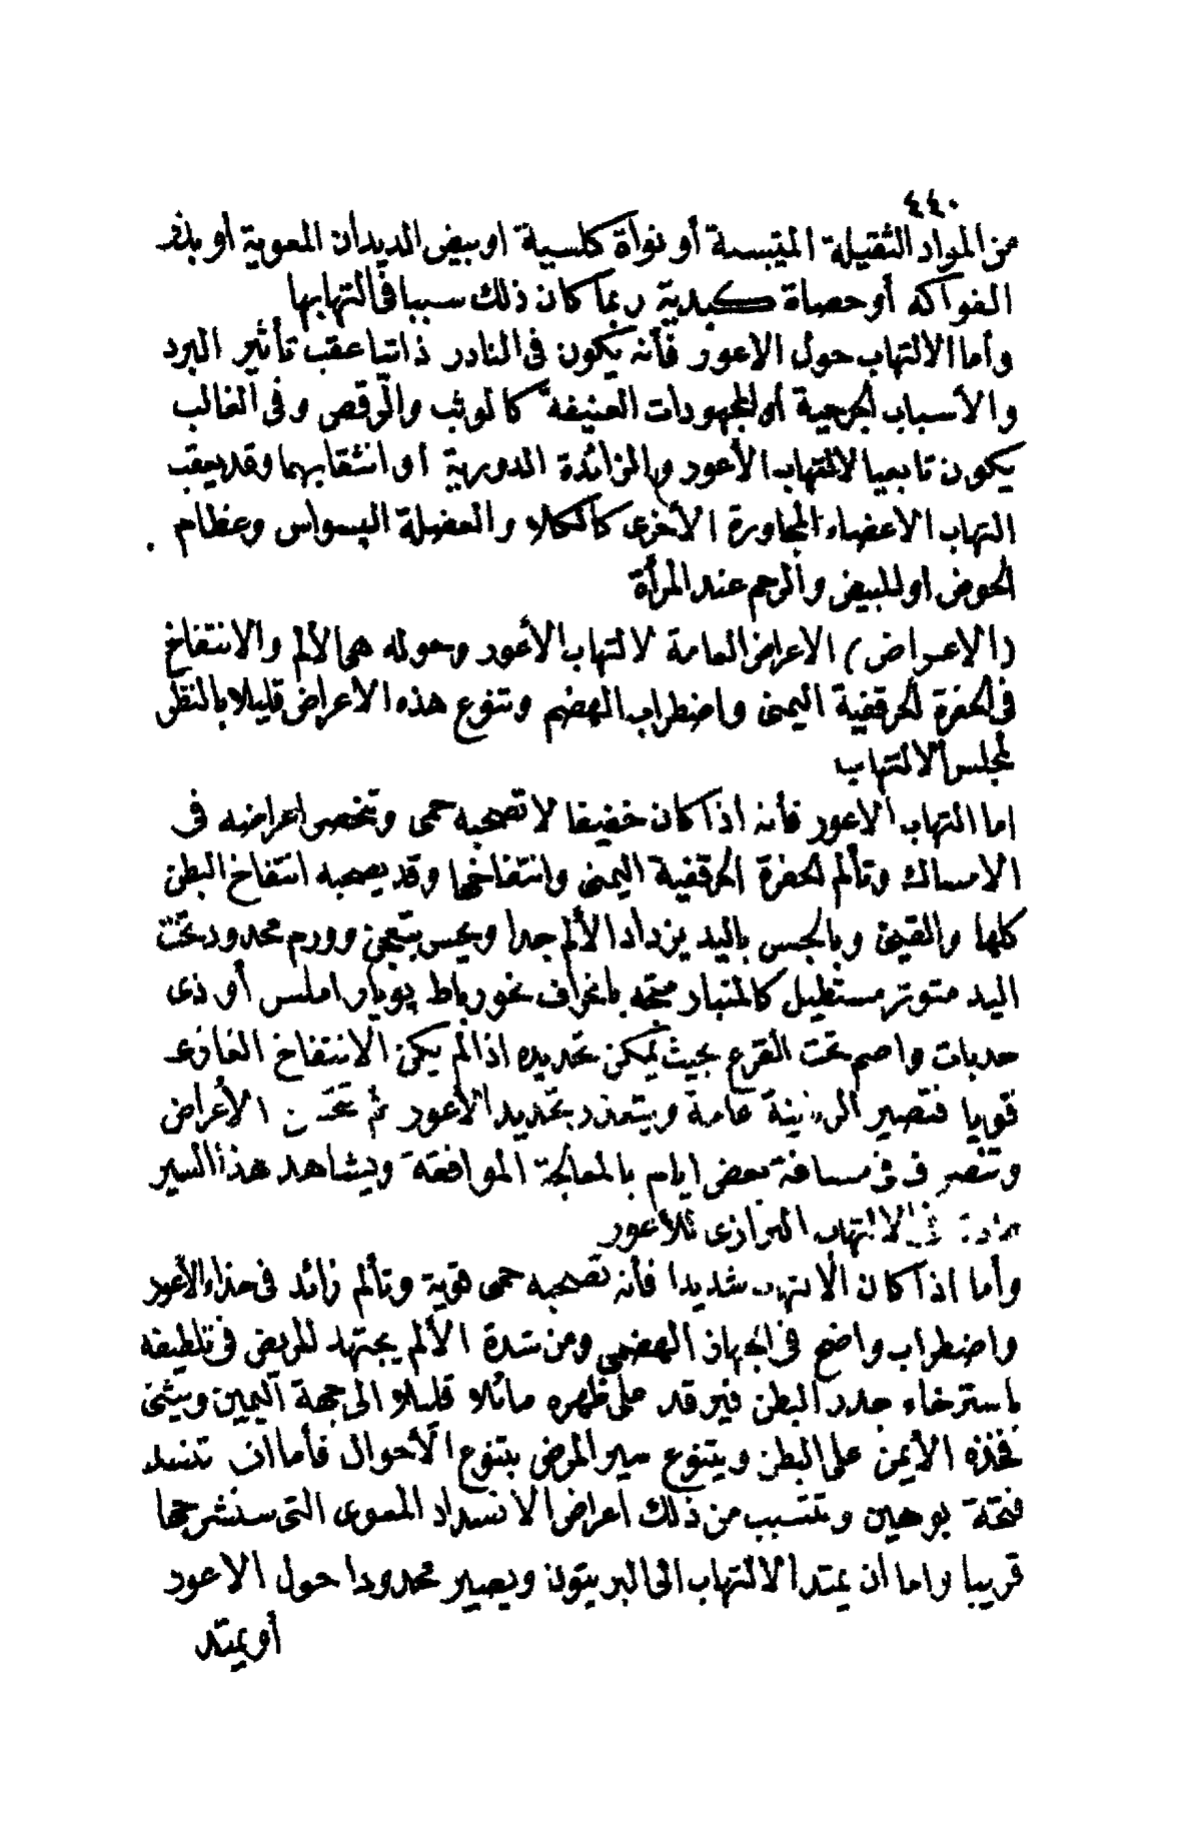 ٤٤٠
من المواد الثقيلة المتيبسة أو نواة كلسية او بيض الديدان المعوية او بذر
الفواكه أو حصاة كبدية ربما كان ذلك سببا فى التهابها
وأما الالتهاب حول الاعور فأنه يكون فى النادر ذاتيا عقب تأثير البرد
والأسباب الجرحية أو المجهودات العنيفة كالوثب والرقص وفى الغالب
يكون تابعيا لالتهاب الأعور والزائدة الدورية أو انثقابهما وقد يعقب
التهاب الاعضاء المجاورة الأخرى كالكلا والعضلة البسواس وعظام
الحوض او المبيض والرحم عند المرأة
(الاعراض) الاعراض العامة لالتهاب الأعور وحوله هى الألم والانتفاخ
فى الحفرة الحرقفية اليمنى واضطراب الهضم وتنوع هذه الأعراض قليلا بالنظر
لمجلس الالتهاب
اما التهاب الاعور فأنه اذا كان خفيفا لا تصحبه حمى وتنحصر اعراضه فى
الامساك وتألم الحفرة الحرقفية اليمنى وانتفاخها وقد يصحبه انتفاخ البطن
كلها والقيئ وبالجس باليد يزداد الألم جدا ويحس بتعجن وورم محدود تحت
اليد متوتر مستطيل كالمنبار متجه بانحراف نحو رباط پوپار املس أو ذى
حدبات واصم تحت القرع بحيث يمكن تحديده اذا لم يكن الانتفاخ الغازى
قويا فتصير الرنينة عامة ويتعذر تحديد الأعور ثم تتحسن الأعراض
وتنصرف فى مسافة بعض ايام بالمعالجة الموافقة ويشاهد هذا السير
عادة فى الالتهاب البرازى للأعور
وأما اذا كان الالتهاب شديدا فأنه تصحبه حمى قوية وتألم زائد فى حذاء الأعور
واضطراب واضح فى الجهاز الهضمى ومن شدة الألم يجتهد المريض فى تلطيفه
باسترخاء جدر البطن فيرقد على ظهره مائلا قليلا الى جهة اليمين ويثنى
فخذه الأيمن على البطن ويتنوع سير المرض بتنوع الأحوال فأما ان تنسد
فتحة بوهين وتتسبب من ذلك اعراض الانسداد المعوى التى سنشرحها
قريبا واما ان يمتد الالتهاب الى البريتون ويصير محدودا حول الاعور
أو يمتد